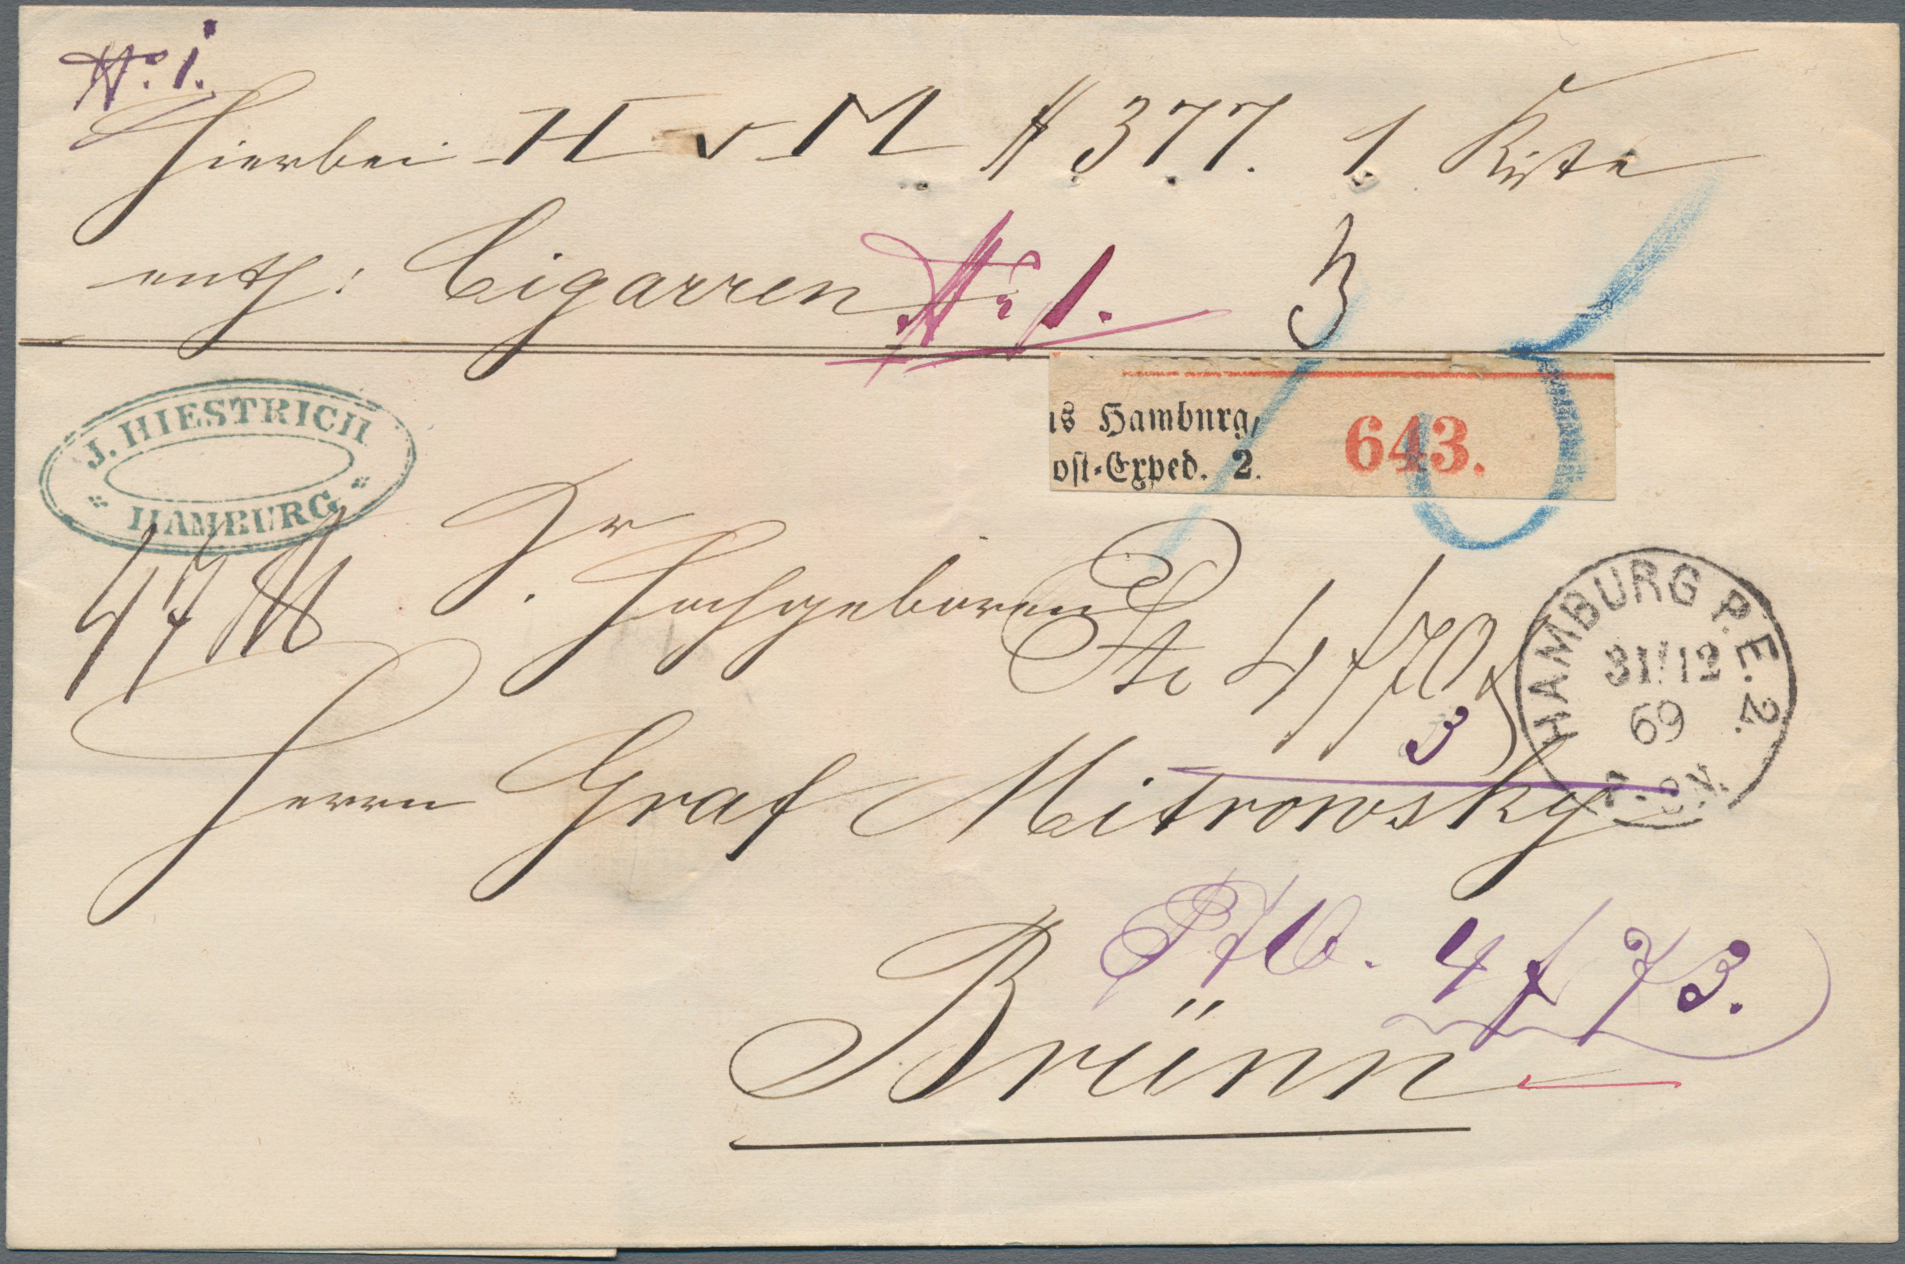 No. 1.
Hierbei H v M # 377. 1 Kiste
enth: Cigarren No 1. 3
J. HIESTRICH
HAMBURG
us Hamburg,
ost-Exped. 2. 643.
Sr. Hochgeboren
47
4 f 70
3
HAMBURG P.E. 2.
31/12
69
Herrn Graf Mitrowsky
4 f 73.
Brünn